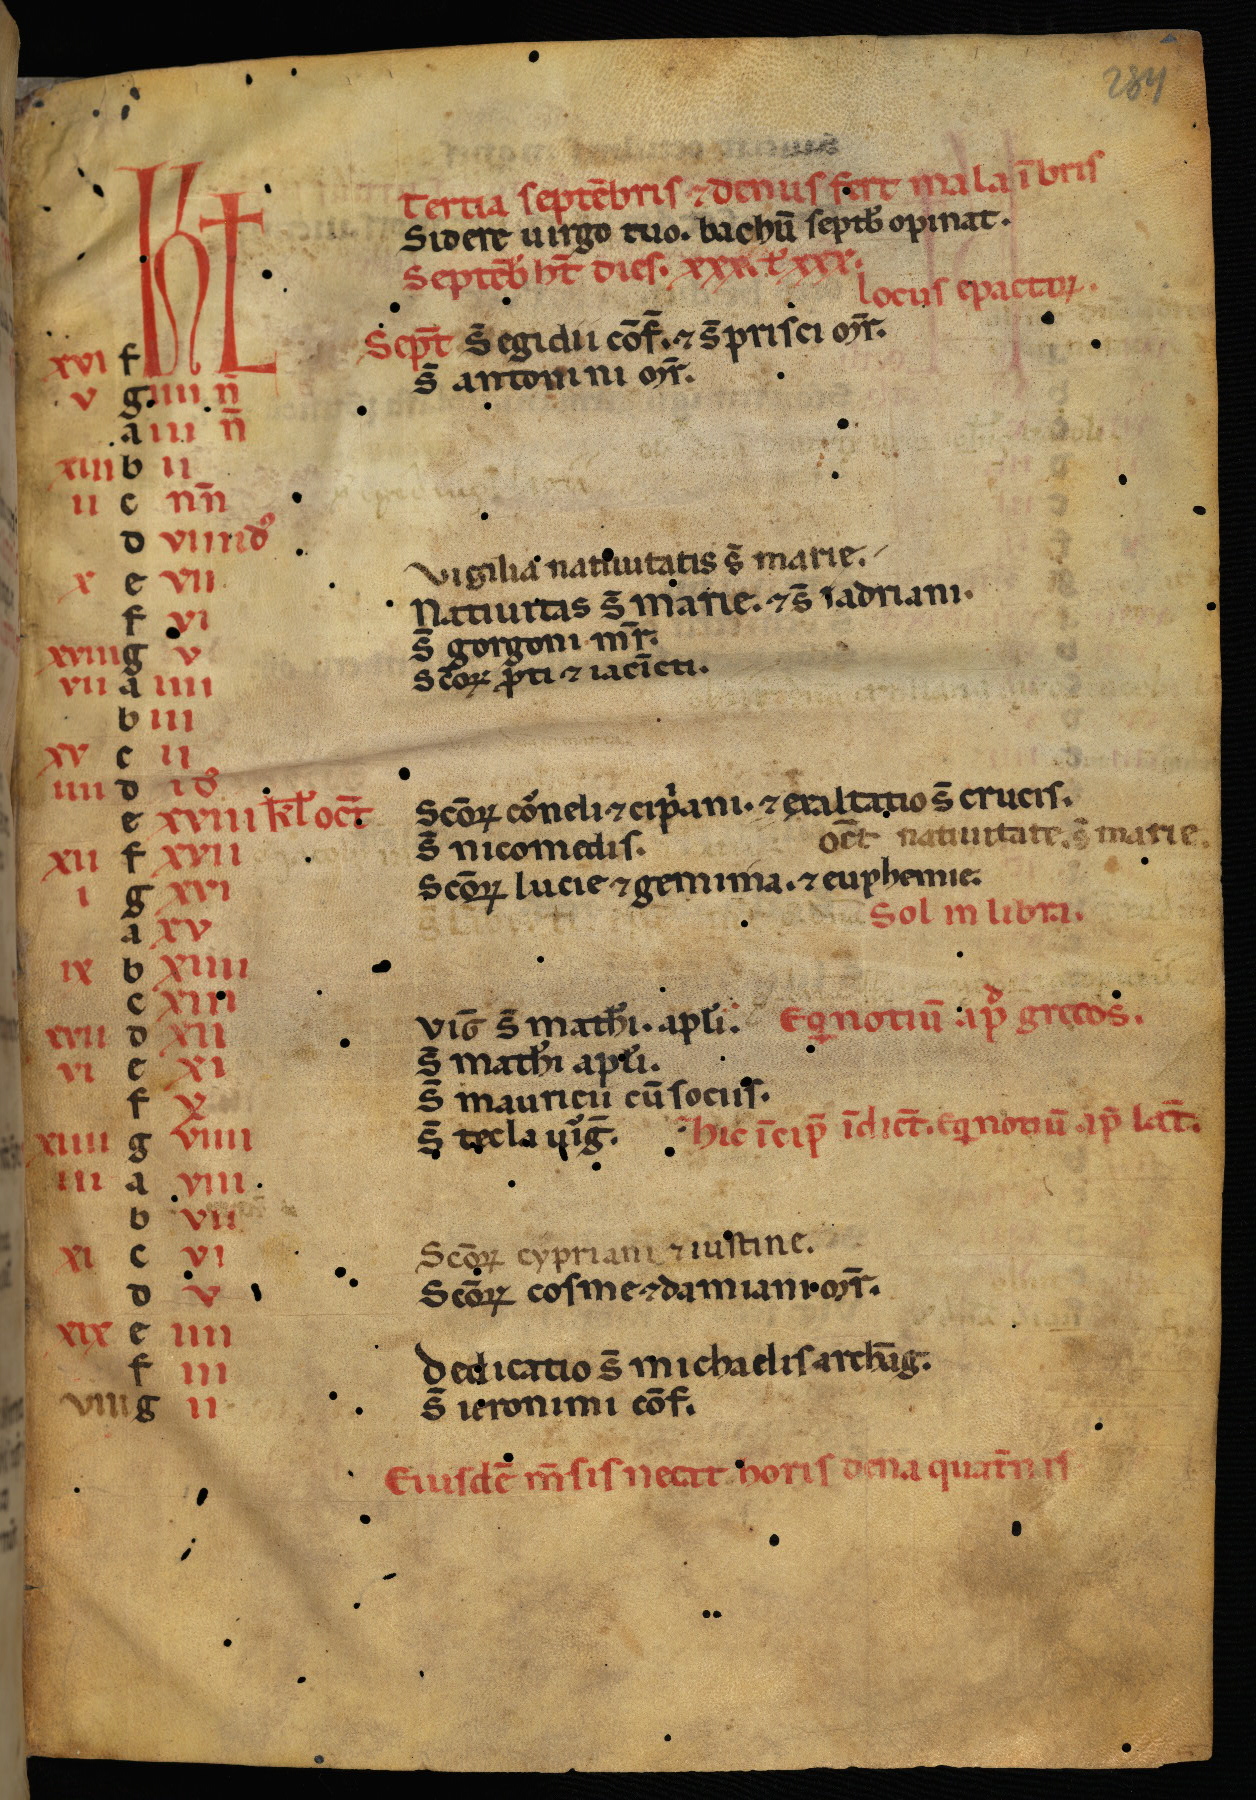 284
KL
Tertia septēbris ⁊ denus fert mala ībris
Sidere uirgo tuo. bachū septēb opinat.
Septēb hr̄ dies. xxx. l' xxx.
locus epactoꝝ.
xvi f Sept̄ S̄ egidii cōf̄. ⁊ S̄ prisci m̄r.
v g iiii n̄ S̄ antonini m̄r.
a iii n̄
xiii b ii
ii c nn̄
d viii id'
x e vii Vigilia natiuitatis S̄ marie.
f vi Natiuitas S̄ marie. ⁊ S̄ iadriani.
xviii g v S̄ gorgoni m̄r.
vii a iiii Scōꝝ p̄ti ⁊ iacīcti.
b iii
xv c ii
iiii d id'
e xviii kl' oct̄ Scōꝝ cōneli ⁊ cip̄ani. ⁊ exaltatio S̄ crucis.
xii f xvii S̄ nicomedis. oct̄ natiuitate. S̄ marie.
i g xvi Scōꝝ lucie ⁊ gemima. ⁊ euphemie.
a xv Sol in libra.
ix b xiiii
c xiii
xvii d xii viḡ S̄ mathi. apl'i. Eqͥnotiū ap̄ grecos.
vi e xi S̄ mathi apl'i.
f x S̄ mauricii cū sociis.
xiiii g viiii S̄ tecla uīḡ. hic īcip̄ īdict̄. Eqͥnotiū ap̄ lat̄.
iii a viii
b vii
xi c vi Scōꝝ cypriani ⁊ iustine.
d v Scōꝝ cosme ⁊ damiani m̄r.
xix e iiii
f iii Dedicatio S̄ michaelis archāg.
viii g ii S̄ ieronimi cōf̄.
Eiusdē m̄sis necat horis dena quat̄nis